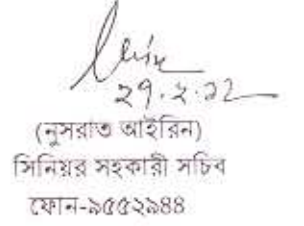 ২৭.২.২২
(নুসরাত আইরিন)
সিনিয়র সহকারী সচিব
ফোন-৯৫৫২৯৪৪